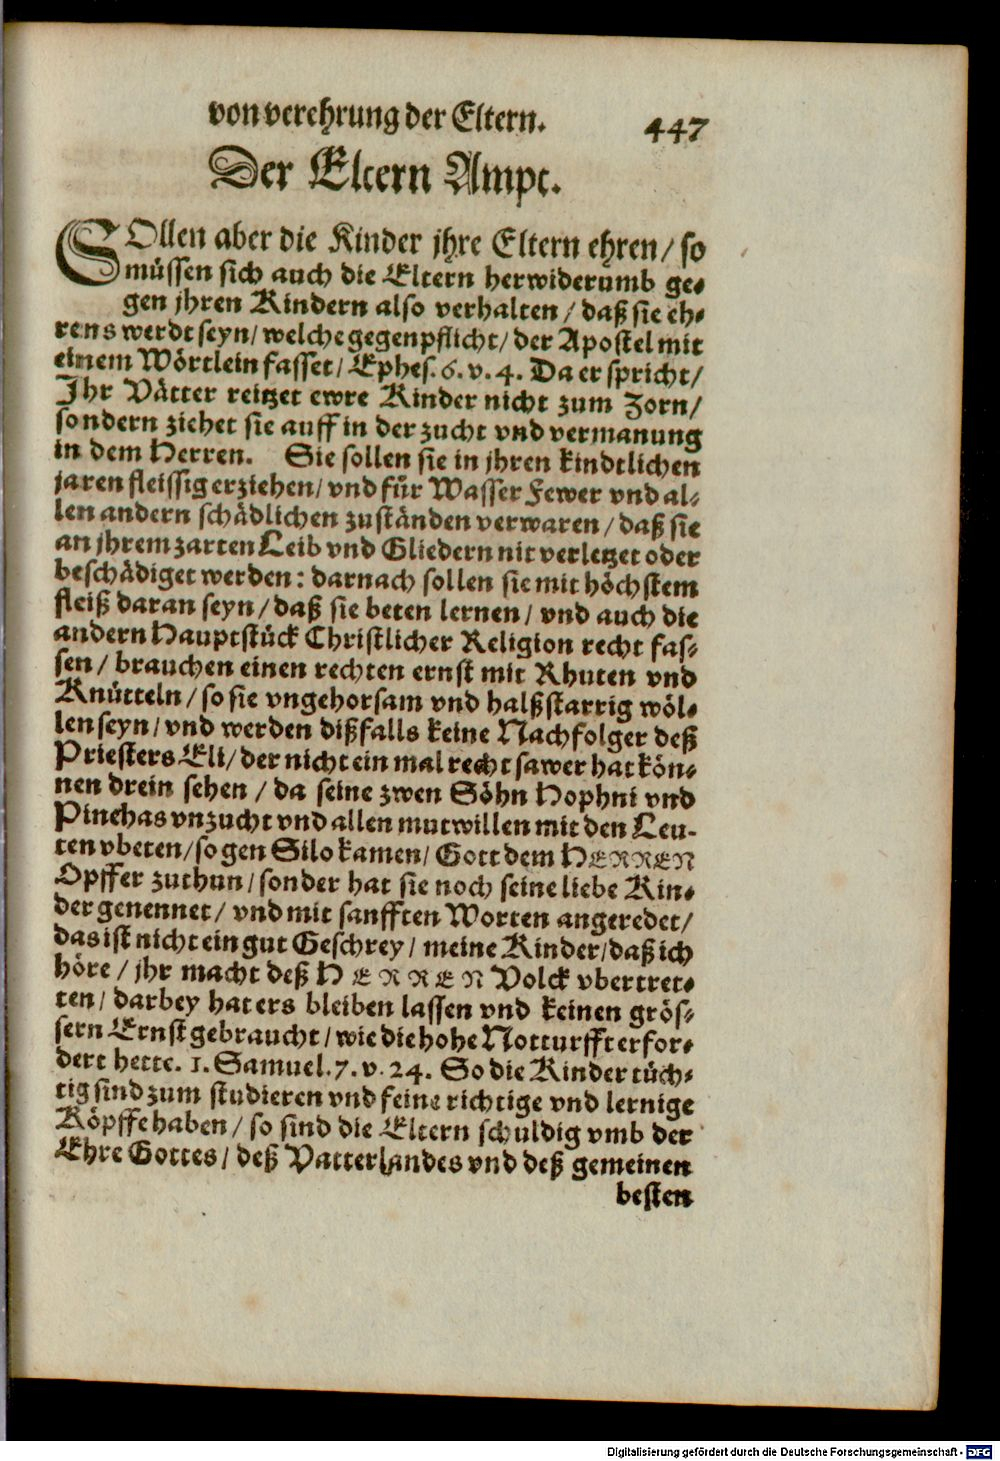 von verehrung der Eltern.
447
Der Eltern Ampt.
SOllen aber die Kinder jhre Eltern ehren/ so
müssen sich auch die Eltern herwiderumb ge-
gen jhren Kindern also verhalten / daß sie eh-
rens werdt seyn/ welche gegenpflicht/ der Apostel mit
einem Wörtlein fasset/ Ephes. 6. v. 4. Da er spricht/
Ihr Vätter reitzet ewre Kinder nicht zum Zorn/
sondern ziehet sie auff in der zucht vnd vermanung
in dem Herren. Sie sollen sie in jhren kindtlichen
jaren fleissig erziehen/ vnd für Wasser Fewer vnd al-
len andern schädlichen zuständen verwaren/ daß sie
an jhrem zarten Leib vnd Gliedern nit verletzet oder
beschädiget werden: darnach sollen sie mit höchstem
fleiß daran seyn/ daß sie beten lernen/ vnd auch die
andern Hauptstück Christlicher Religion recht fas-
sen / brauchen einen rechten ernst mit Rhuten vnd
Knütteln/ so sie vngehorsam vnd halßstarrig wöl-
len seyn/ vnd werden dißfalls keine Nachfolger deß
Priesters Eli/ der nicht ein mal recht sawer hat kön-
nen drein sehen / da seine zwen Söhn Hophni vnd
Pinehas vnzucht vnd allen mutwillen mit den Leu-
ten vbeten/ so gen Silo kamen/ Gott dem HERREN
Opffer zuthun/ sonder hat sie noch seine liebe Kin-
der genennet/ vnd mit sanfften Worten angeredet/
das ist nicht ein gut Geschrey/ meine Kinder/ daß ich
höre / jhr macht deß HERREN Volck vbertret-
ten/ darbey hat ers bleiben lassen vnd keinen grös-
sern Ernst gebraucht/ wie die hohe Notturfft erfor-
dert hette. 1. Samuel. 7. v. 24. So die Kinder tüch-
tig sind zum studieren vnd feine richtige vnd lernige
Köpffe haben/ so sind die Eltern schuldig vmb der
Ehre Gottes/ deß Vatterlandes vnd deß gemeinen
besten
Digitalisierung gefördert durch die Deutsche Forschungsgemeinschaft - DFG